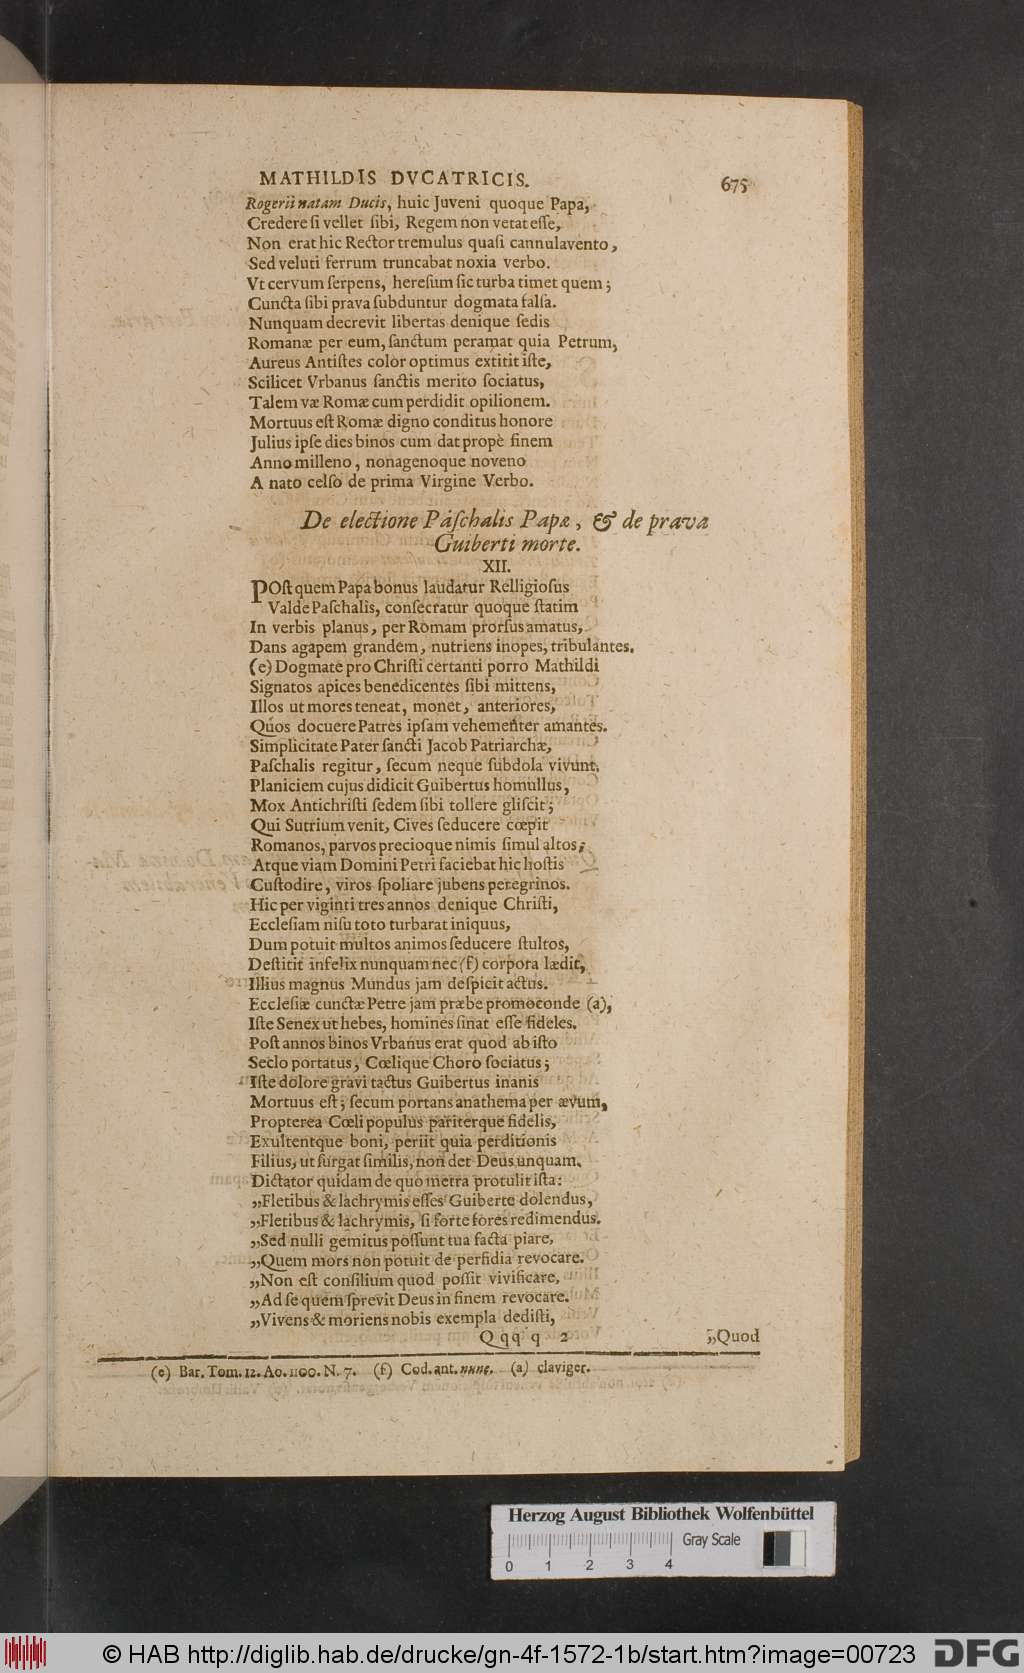 MATHILDIS DVCATRICIS. 675
Rogerii natam Ducis, huic Juveni quoque Papa,
Credere ſi vellet ſibi, Regem non vetat eſſe,
Non erat hic Rector tremulus quaſi cannulavento,
Sed veluti ferrum truncabat noxia verbo.
Vt cervum ſerpens, hereſum ſic turba timet quem;
Cuncta ſibi prava ſubduntur dogmata falſa.
Nunquam decrevit libertas denique ſedis
Romanæ per eum, ſanctum peramat quia Petrum,
Aureus Antiſtes color optimus extitit iſte,
Scilicet Vrbanus ſanctis merito ſociatus,
Talem væ Romæ cum perdidit opilionem.
Mortuus eſt Romæ digno conditus honore
Julius ipſe dies binos cum dat propè finem
Anno milleno, nonagenoque noveno
A nato celſo de prima Virgine Verbo.
De electione Paſchalis Papæ, & de prava
Guiberti morte.
XII.
POſt quem Papa bonus laudatur Relligioſus
Valde Paſchalis, conſecratur quoque ſtatim
In verbis planus, per Romam prorſus amatus,
Dans agapem grandem, nutriens inopes, tribulantes.
(e) Dogmate pro Chriſti certanti porro Mathildi
Signatos apices benedicentes ſibi mittens,
Illos ut mores teneat, monet, anteriores,
Quos docuere Patres ipſam vehementer amantes.
Simplicitate Pater ſancti Jacob Patriarchæ,
Paſchalis regitur, ſecum neque ſubdola vivunt.
Planiciem cujus didicit Guibertus homullus,
Mox Antichriſti ſedem ſibi tollere gliſcit;
Qui Sutrium venit, Cives ſeducere cœpit
Romanos, parvos precioque nimis ſimul altos;
Atque viam Domini Petri faciebat hic hoſtis
Cuſtodire, viros ſpoliare jubens peregrinos.
Hic per viginti tres annos denique Chriſti,
Eccleſiam niſu toto turbarat iniquus,
Dum potuit multos animos ſeducere ſtultos,
Deſtitit infelix nunquam nec (f) corpora lædit,
Illius magnus Mundus jam deſpicit actus.
Eccleſiæ cunctæ Petre jam præbe promoconde (a),
Iſte Senex ut hebes, homines ſinat eſſe fideles.
Poſt annos binos Vrbanus erat quod ab iſto
Seclo portatus, Cœlique Choro ſociatus;
Iſte dolore gravi tactus Guibertus inanis
Mortuus eſt; ſecum portans anathema per ævum,
Propterea Cœli populus pariterque fidelis,
Exultentque boni, periit quia perditionis
Filius, ut ſurgat ſimilis, non det Deus unquam.
Dictator quidam de quo metra protulit iſta:
„Fletibus & lachrymis eſſes Guiberte dolendus,
„Fletibus & lachrymis, ſi forte fores redimendus.
„Sed nulli gemitus poſſunt tua facta piare,
„Quem mors non potuit de perfidia revocare.
„Non eſt conſilium quod poſſit vivificare,
„Ad ſe quem ſprevit Deus in finem revocare.
„Vivens & moriens nobis exempla dediſti,
Qqqq 2 „Quod
(e) Bar. Tom. 12. Ao. 1100. N. 7. (f) Cod. ant. nunc. (a) claviger.
Herzog August Bibliothek Wolfenbüttel
Gray Scale
0 1 2 3 4
© HAB http://diglib.hab.de/drucke/gn-4f-1572-1b/start.htm?image=00723
DFG